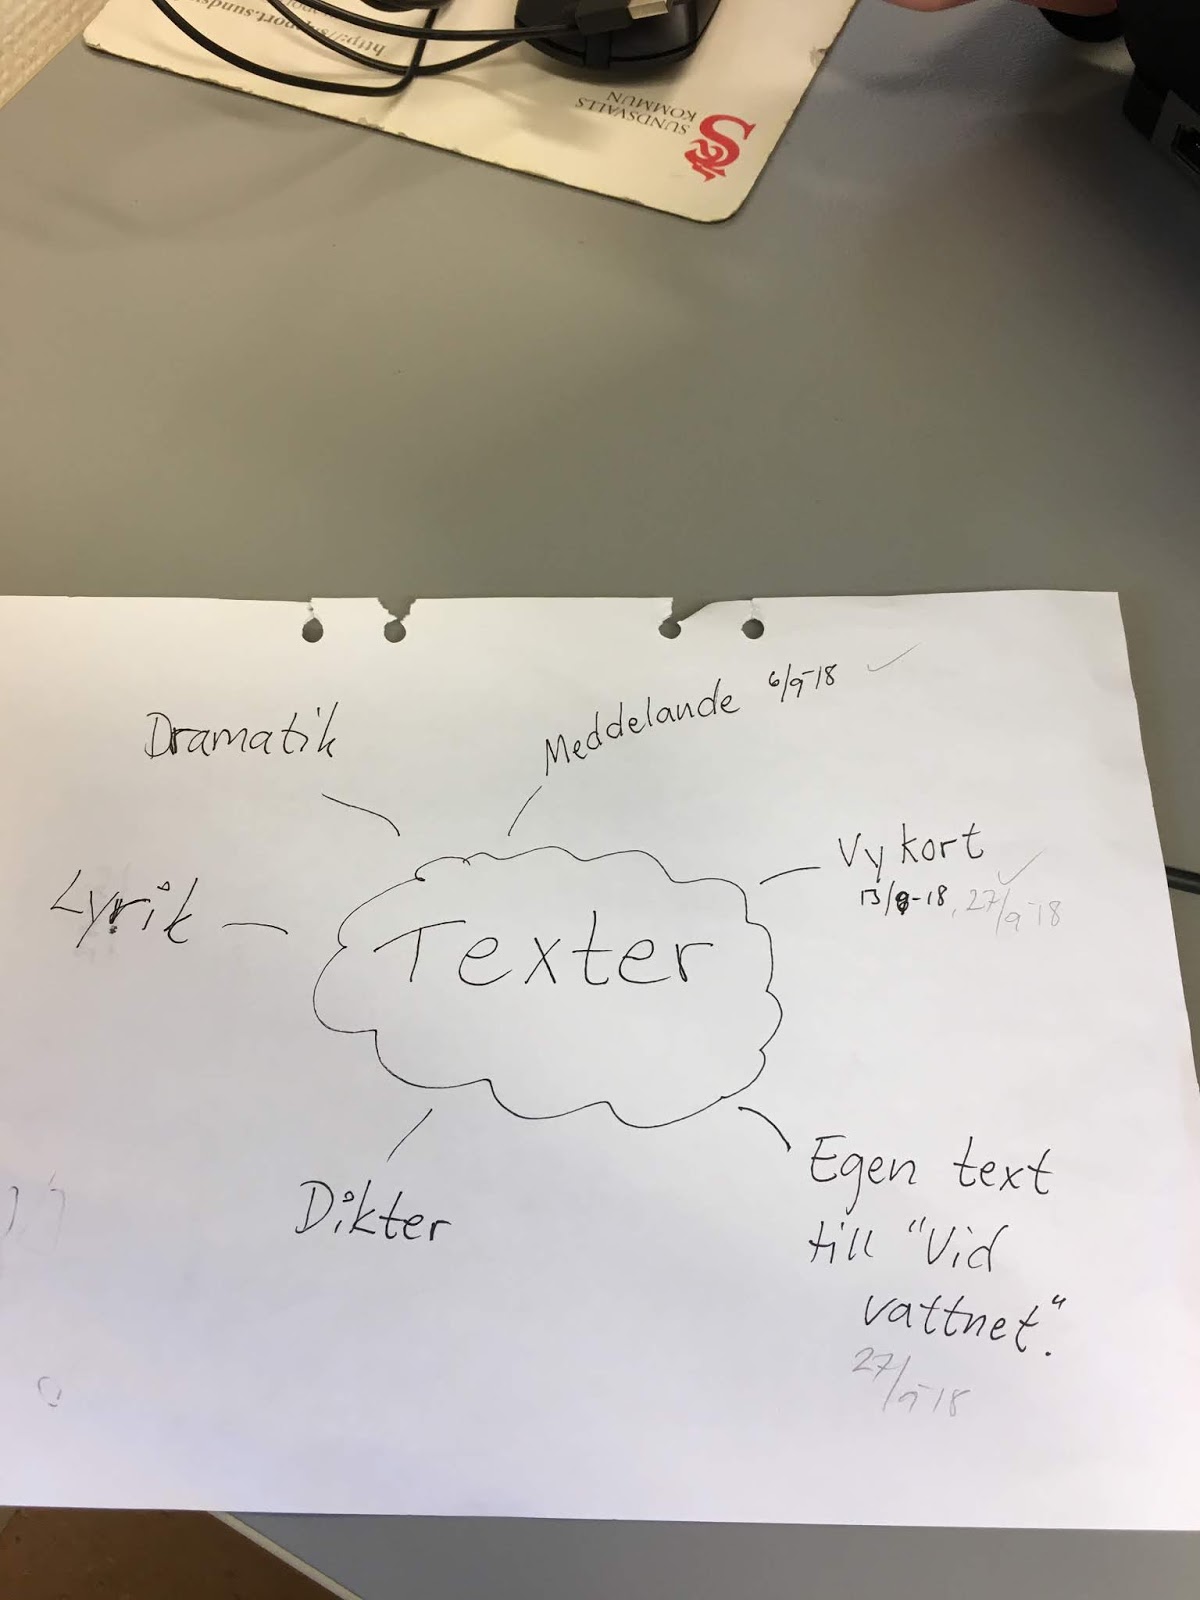 SUNDSVALLS
KOMMUN
Dramatik
Meddelande 6/9-18
Lyrik
Vykort
13/9-18, 27/9-18
Texter
Dikter
Egen text
till "Vid
vattnet".
27/9-18